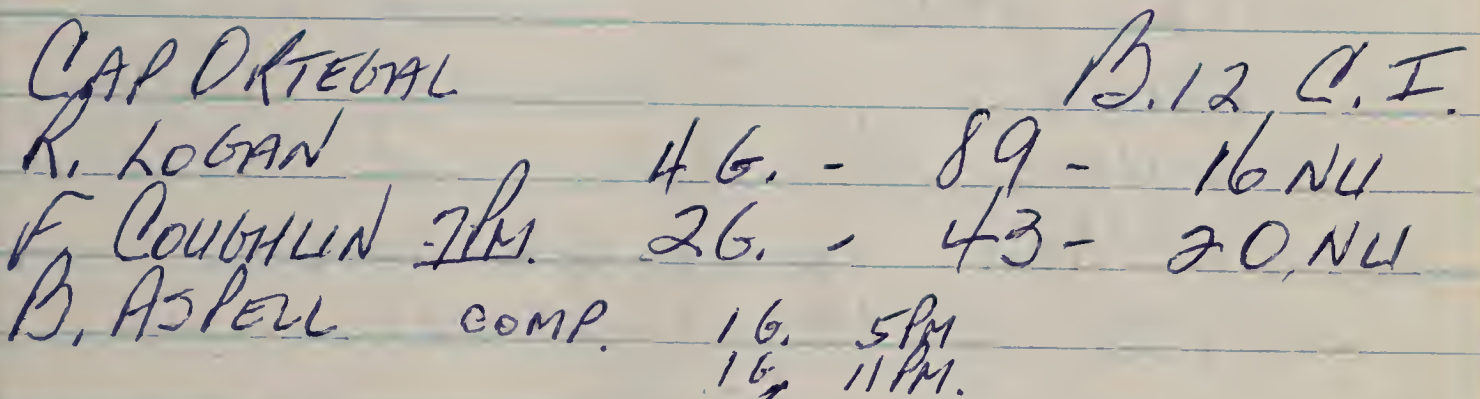 CAP ORTEGAL B.12 C.I.
R. LOGAN 4 G. - 89 - 16 NU
F. COUGHLIN 7PM. 2G. - 43 - 20, NU
B. ASPELL COMP. 1 G. 5PM
1 G, 11 PM.